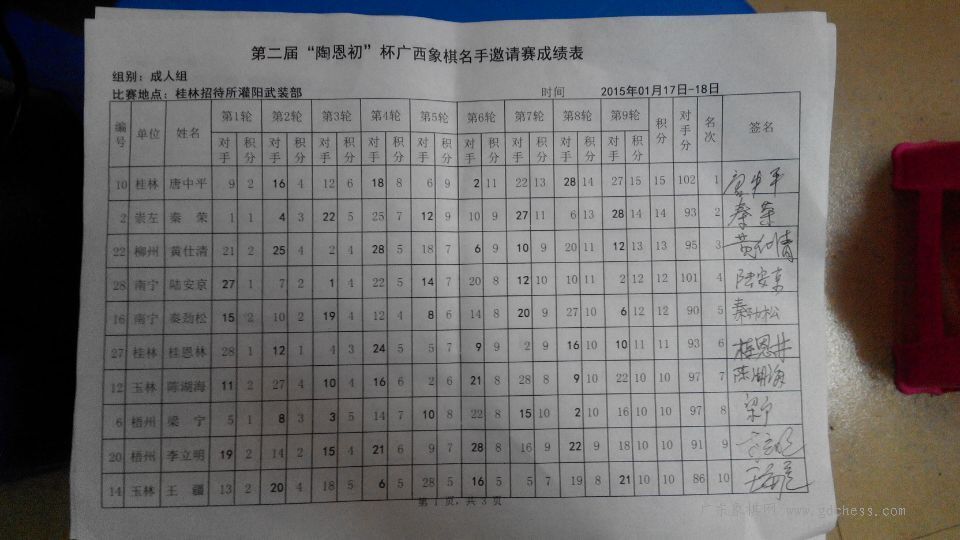 第二届“陶恩初”杯广西象棋名手邀请赛成绩表
组别：成人组
比赛地点：桂林招待所灌阳武装部 时间 2015年01月17日-18日
编号 单位 姓名 第1轮 第2轮 第3轮 第4轮 第5轮 第6轮 第7轮 第8轮 第9轮 积分 对手分 名次 签名
对手 积分 对手 积分 对手 积分 对手 积分 对手 积分 对手 积分 对手 积分 对手 积分 对手 积分
10 桂林 唐中平 9 2 16 4 12 6 18 8 6 9 2 11 22 13 28 14 27 15 15 102 1 唐中平
2 崇左 秦荣 1 1 4 3 22 5 25 7 12 9 10 9 27 11 6 13 28 14 14 93 2 秦荣
22 柳州 黄仕清 21 2 25 4 2 4 28 5 18 7 6 9 10 9 20 11 12 13 13 95 3 黄仕清
28 南宁 陆安京 27 1 7 2 1 4 22 5 14 7 20 8 12 10 10 11 2 12 12 101 4 陆安京
16 南宁 秦劲松 15 2 10 2 19 4 12 4 8 6 14 8 20 9 27 10 6 12 12 90 5 秦劲松
27 桂林 桂恩林 28 1 12 1 4 3 24 5 5 7 9 9 2 9 16 10 10 11 11 93 6 桂恩林
12 玉林 陈湖海 11 2 27 4 10 4 16 6 2 6 21 8 28 8 9 10 22 10 10 97 7 陈湖海
6 梧州 梁宁 5 1 8 3 3 5 14 7 10 8 22 8 15 10 2 10 16 10 10 97 8 梁宁
20 梧州 李立明 19 2 14 2 15 4 21 6 9 7 28 8 16 9 22 9 18 10 10 91 9
14 玉林 王疆 13 2 20 4 18 5 6 5 28 5 16 5 5 7 19 8 21 10 10 86 10
第 1 页，共 3 页
广东象棋网 www.gdchess.com